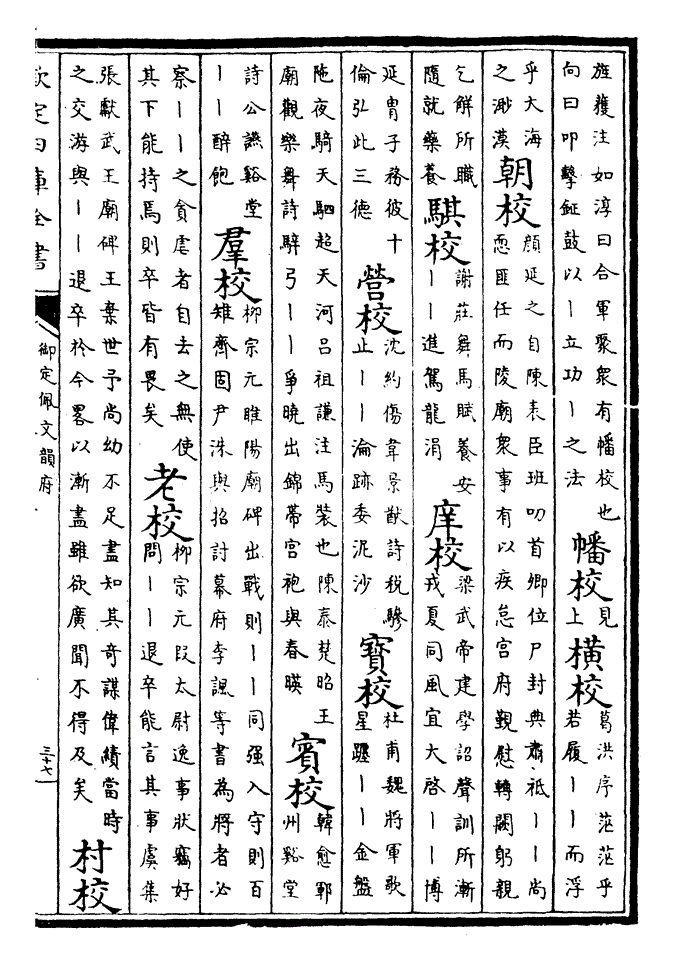 旌獲注如淳曰合軍聚衆有幡校也
向曰叩擊鉦鼓以丨立功丨之法
幡校
見
上
橫校
葛洪序茫茫乎
若履丨丨而浮
乎大海
之渺漠
朝校
顔延之自陳表臣班叨首卿位尸封典肅祗丨丨尚
恧匪任而陵廟衆事有以疾怠宫府覲慰轉闕躬親
乞解所職
隨就藥養
騏校
謝莊舞馬賦養安
丨丨進駕龍涓
庠校
梁武帝建學詔聲訓所漸
戎夏同風宜大啓丨丨博
延胄子務彼十
倫弘此三德
營校
沈約傷韋景猷詩税驂
止丨丨淪跡委泥沙
寳校
杜甫魏將軍歌
星躔丨丨金盤
陁夜騎天駟超天河吕祖謙注馬裝也陳泰楚昭王
廟觀樂舞詩騂弓丨丨爭曉出錦帶宫袍與春暎
賓校
韓愈鄆
州谿堂
詩公讌谿堂
丨丨醉飽
羣校
柳宗元睢陽廟碑出戰則丨丨同强入守則百
雉齊固尹洙與招討幕府李諷等書為將者必
察丨丨之貪虐者自去之無使
其下能持焉則卒皆有畏矣
老校
柳宗元段太尉逸事狀竊好
問丨丨退卒能言其事虞集
張獻武王廟碑王棄世予尚幼不足盡知其奇謀偉績當時
之交游與丨丨退卒於今畧以漸盡雖欲廣聞不得及矣
村校
欽定四庫全書
御定佩文韻府
三十七